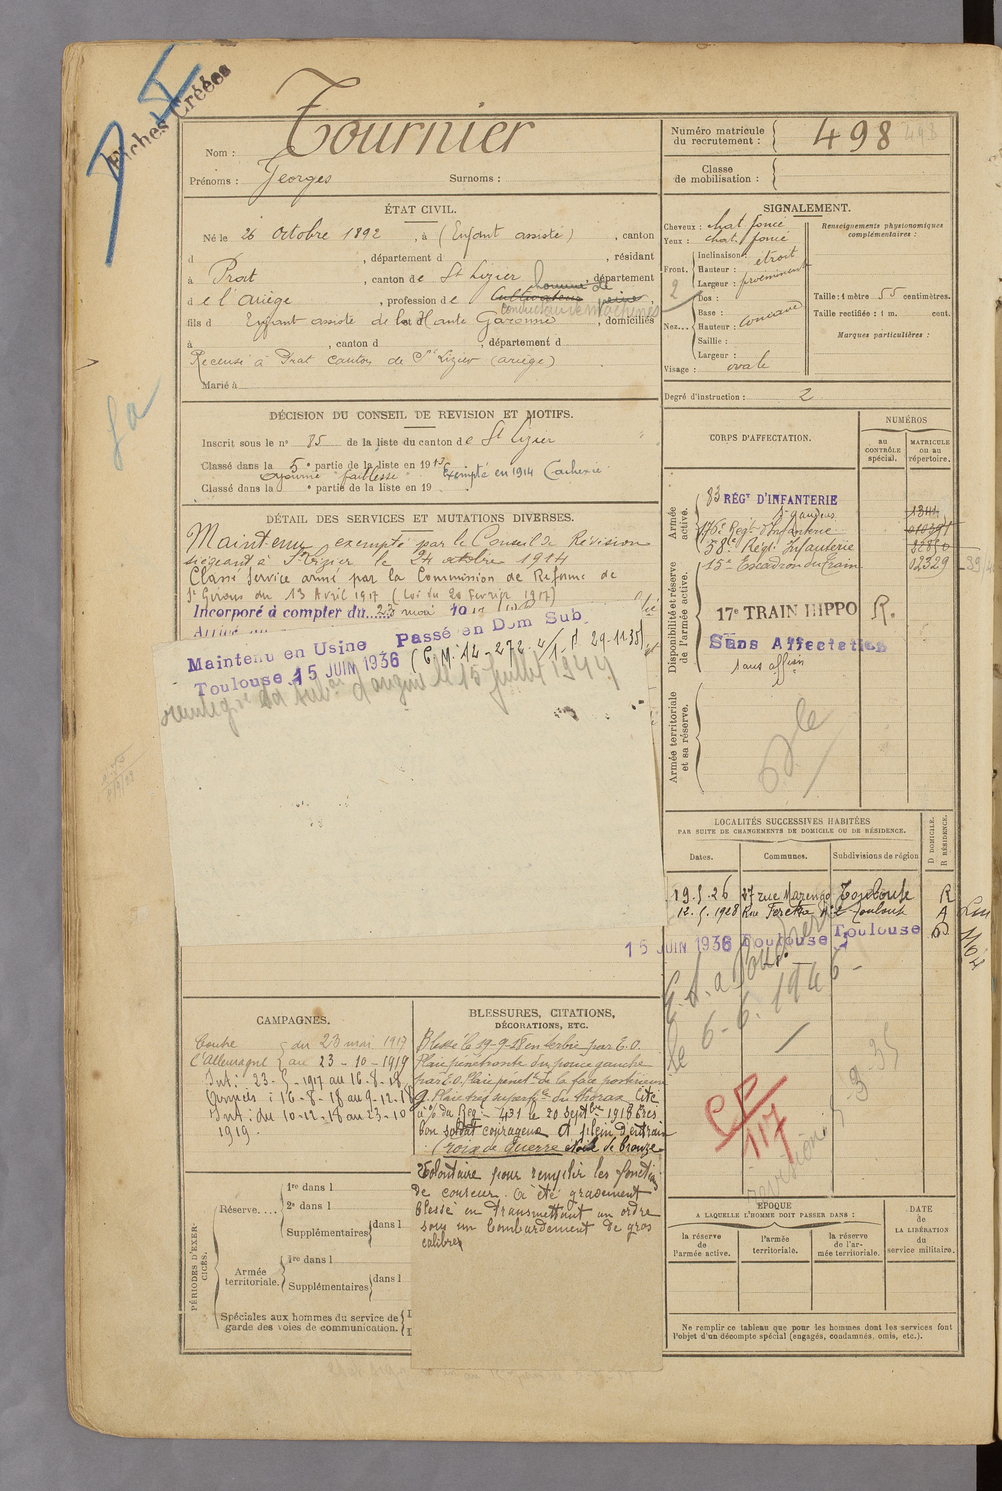 Fiches Créées
Nom : Tournier
Prénoms : Georges Surnoms :
Numéro matricule du recrutement : 498
Classe de mobilisation :
ÉTAT CIVIL.
Né le 26 Octobre 1892, à (Enfant assisté), canton
d , département d , résidant
à Prat, canton de St Lizier, département
de l'Ariège, profession de Cultivateur
conducteur de machines
fils d Enfant assisté de la Haute Garonne, domiciliés
à , canton d , département d
Recensé à Prat canton de St Lizier (ariège)
Marié à
SIGNALEMENT.
Cheveux : chat foncé
Yeux : chat foncé
Front. Inclinaison : étroit
Hauteur : proéminent
Largeur :
Nez... Dos :
Base :
Hauteur : concave
Saillie :
Largeur :
Visage : ovale
Renseignements physionomiques complémentaires :
Taille : 1 mètre 55 centimètres.
Taille rectifiée : 1 m. cent.
Marques particulières :
Degré d'instruction : 2
DÉCISION DU CONSEIL DE REVISION ET MOTIFS.
Inscrit sous le n° 85 de la liste du canton de St Lizier
Classé dans la 5e partie de la liste en 1913 Exempté en 1914
Ajourné faiblesse
Classé dans la e partie de la liste en 19
DÉTAIL DES SERVICES ET MUTATIONS DIVERSES.
Maintenu exempté par le Conseil de Révision
siégeant à St Lizier le 24 octobre 1914
Classé Service armé par la Commission de Réforme de
St Girons du 13 Avril 1917 (Loi du 20 Février 1917)
Incorporé à compter du 23 mai
Maintenu en Usine Passé en Dom Sub
Toulouse 15 JUIN 1936
CORPS D'AFFECTATION.
NUMÉROS
au CONTRÔLE spécial.
MATRICULE ou au répertoire.
Armée active.
83 RÉGT D'INFANTERIE
St gaudens
176e Regt d'Infanterie
38e Régt Infanterie
15e Escadron du Train 02329
Disponibilité et réserve de l'armée active.
17e TRAIN HIPPO R.
Sans Affectation
sans affon
Armée territoriale et sa réserve.
LOCALITÉS SUCCESSIVES HABITÉES
PAR SUITE DE CHANGEMENTS DE DOMICILE OU DE RÉSIDENCE.
Dates. Communes. Subdivisions de région
D DOMICILE.
R RÉSIDENCE.
19.5.26 27 rue Marengo Toulouse R
12.5.1928 Toulouse
15 JUIN 1936 Toulouse Toulouse D
le 6-6-1946
CAMPAGNES.
Contre l'Allemagne du 23 mai 1917
au 23-10-1919
Int : 23-5-1917 au 16-8-18
Armées : 16-8-18 au 9-12-18
Int : du 10-12-18 au 23-10
1919.
BLESSURES, CITATIONS,
DÉCORATIONS, ETC.
Blessé le 19-9-18 en Serbie par E.O.
Plaie pénétrante du pouce gauche
par E.O. Plaie pénette de la face postérieure
g. Plaie très superflle du thorax Cité
à l'o/ du Regt n° 431 le 20 Septbre 1918 Très
bon soldat courageux et plein d'entrain
Croix de Guerre étoile de bronze
Volontaire pour remplir les fonctions
de coureur. A été gravement
blessé en transmettant un ordre
sous un bombardement de gros
calibres
CP
117
révision
PÉRIODES D'EXERCICES.
Réserve.... 1re dans l
2e dans l
Supplémentaires dans l
Armée territoriale. 1re dans l
Supplémentaires dans l
Spéciales aux hommes du service de garde des voies de communication.
ÉPOQUE
A LAQUELLE L'HOMME DOIT PASSER DANS :
la réserve de l'armée active.
l'armée territoriale.
la réserve de l'armée territoriale.
DATE de LA LIBÉRATION du service militaire.
Ne remplir ce tableau que pour les hommes dont les services font
l'objet d'un décompte spécial (engagés, condamnés, omis, etc.).